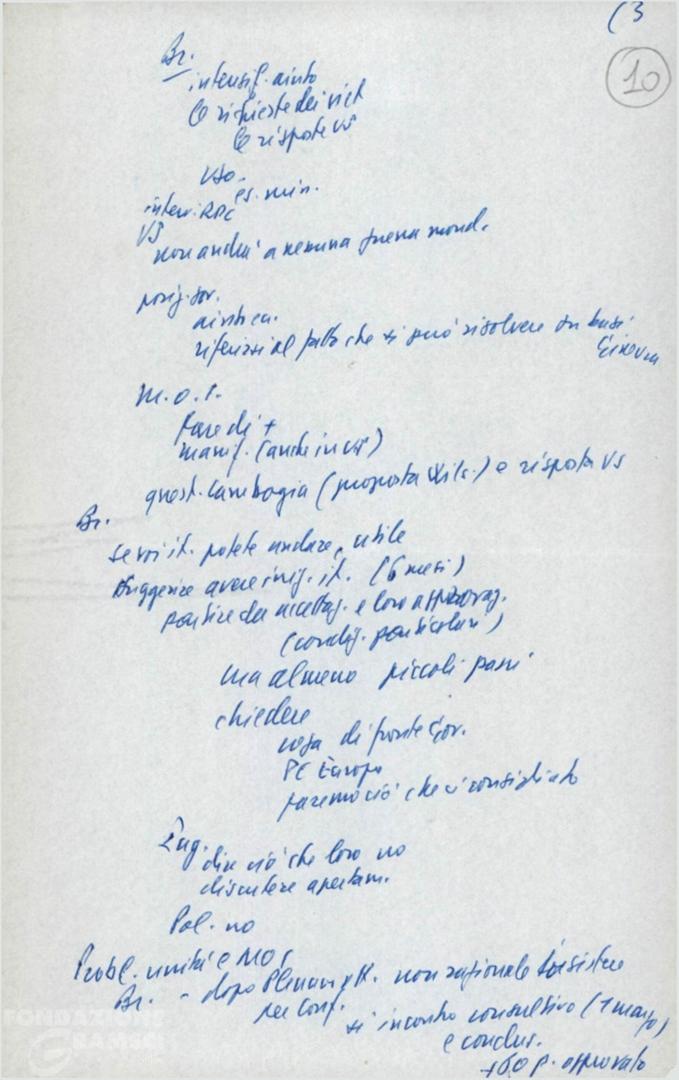 (3
10
Br.
intensif. aiuto
le richieste dei viet
le risposte US
USA -
es. min.
interv. RPC
US
non andrà a nessuna guerra mond.
posiz. sov.
riferirsi al fatto che si può risolvere su basi
Ginevra
M.O.I.
fare di +
manif. (anche in US)
quest. Cambogia (proposta Wils.) e risposta US
Br.
se voi it. potete andare, utile
suggerire avere iniz. it. (6 mesi)
partire da accettaz. e loro approvaz.
(condiz. particolari)
ma almeno piccoli passi
chiedere
cosa di fronte Gov.
PC Europa
faremo ciò che ci consigliato
Lug.
dire ciò che loro no
discutere apertam.
Pol. no
Probl. unità e MOI
Br. - dopo Plenum non razionale insistere
per Conf.
si incontro consultivo (1 marzo)
e conclus.
+ 60 p. approvato
FONDAZIONE
GRAMSCI